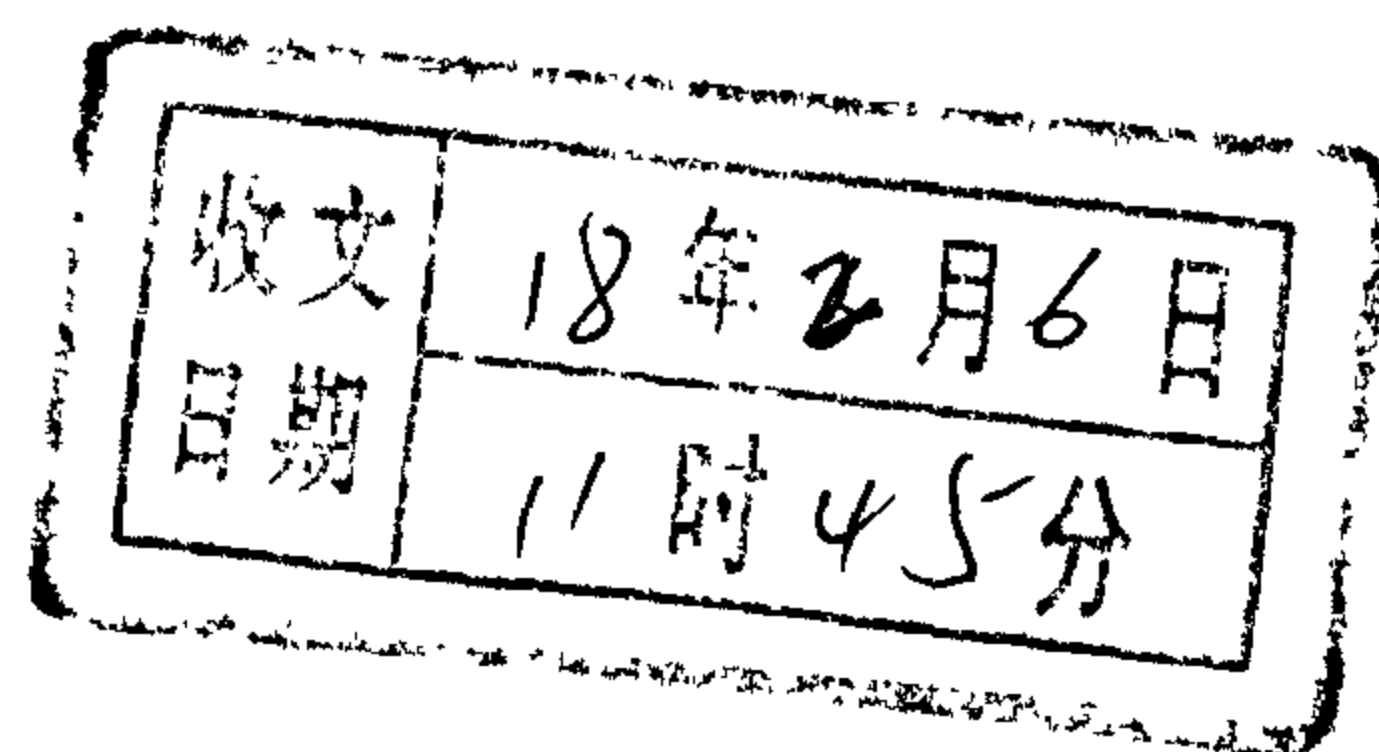 收文日期
18年2月6日
11时45分